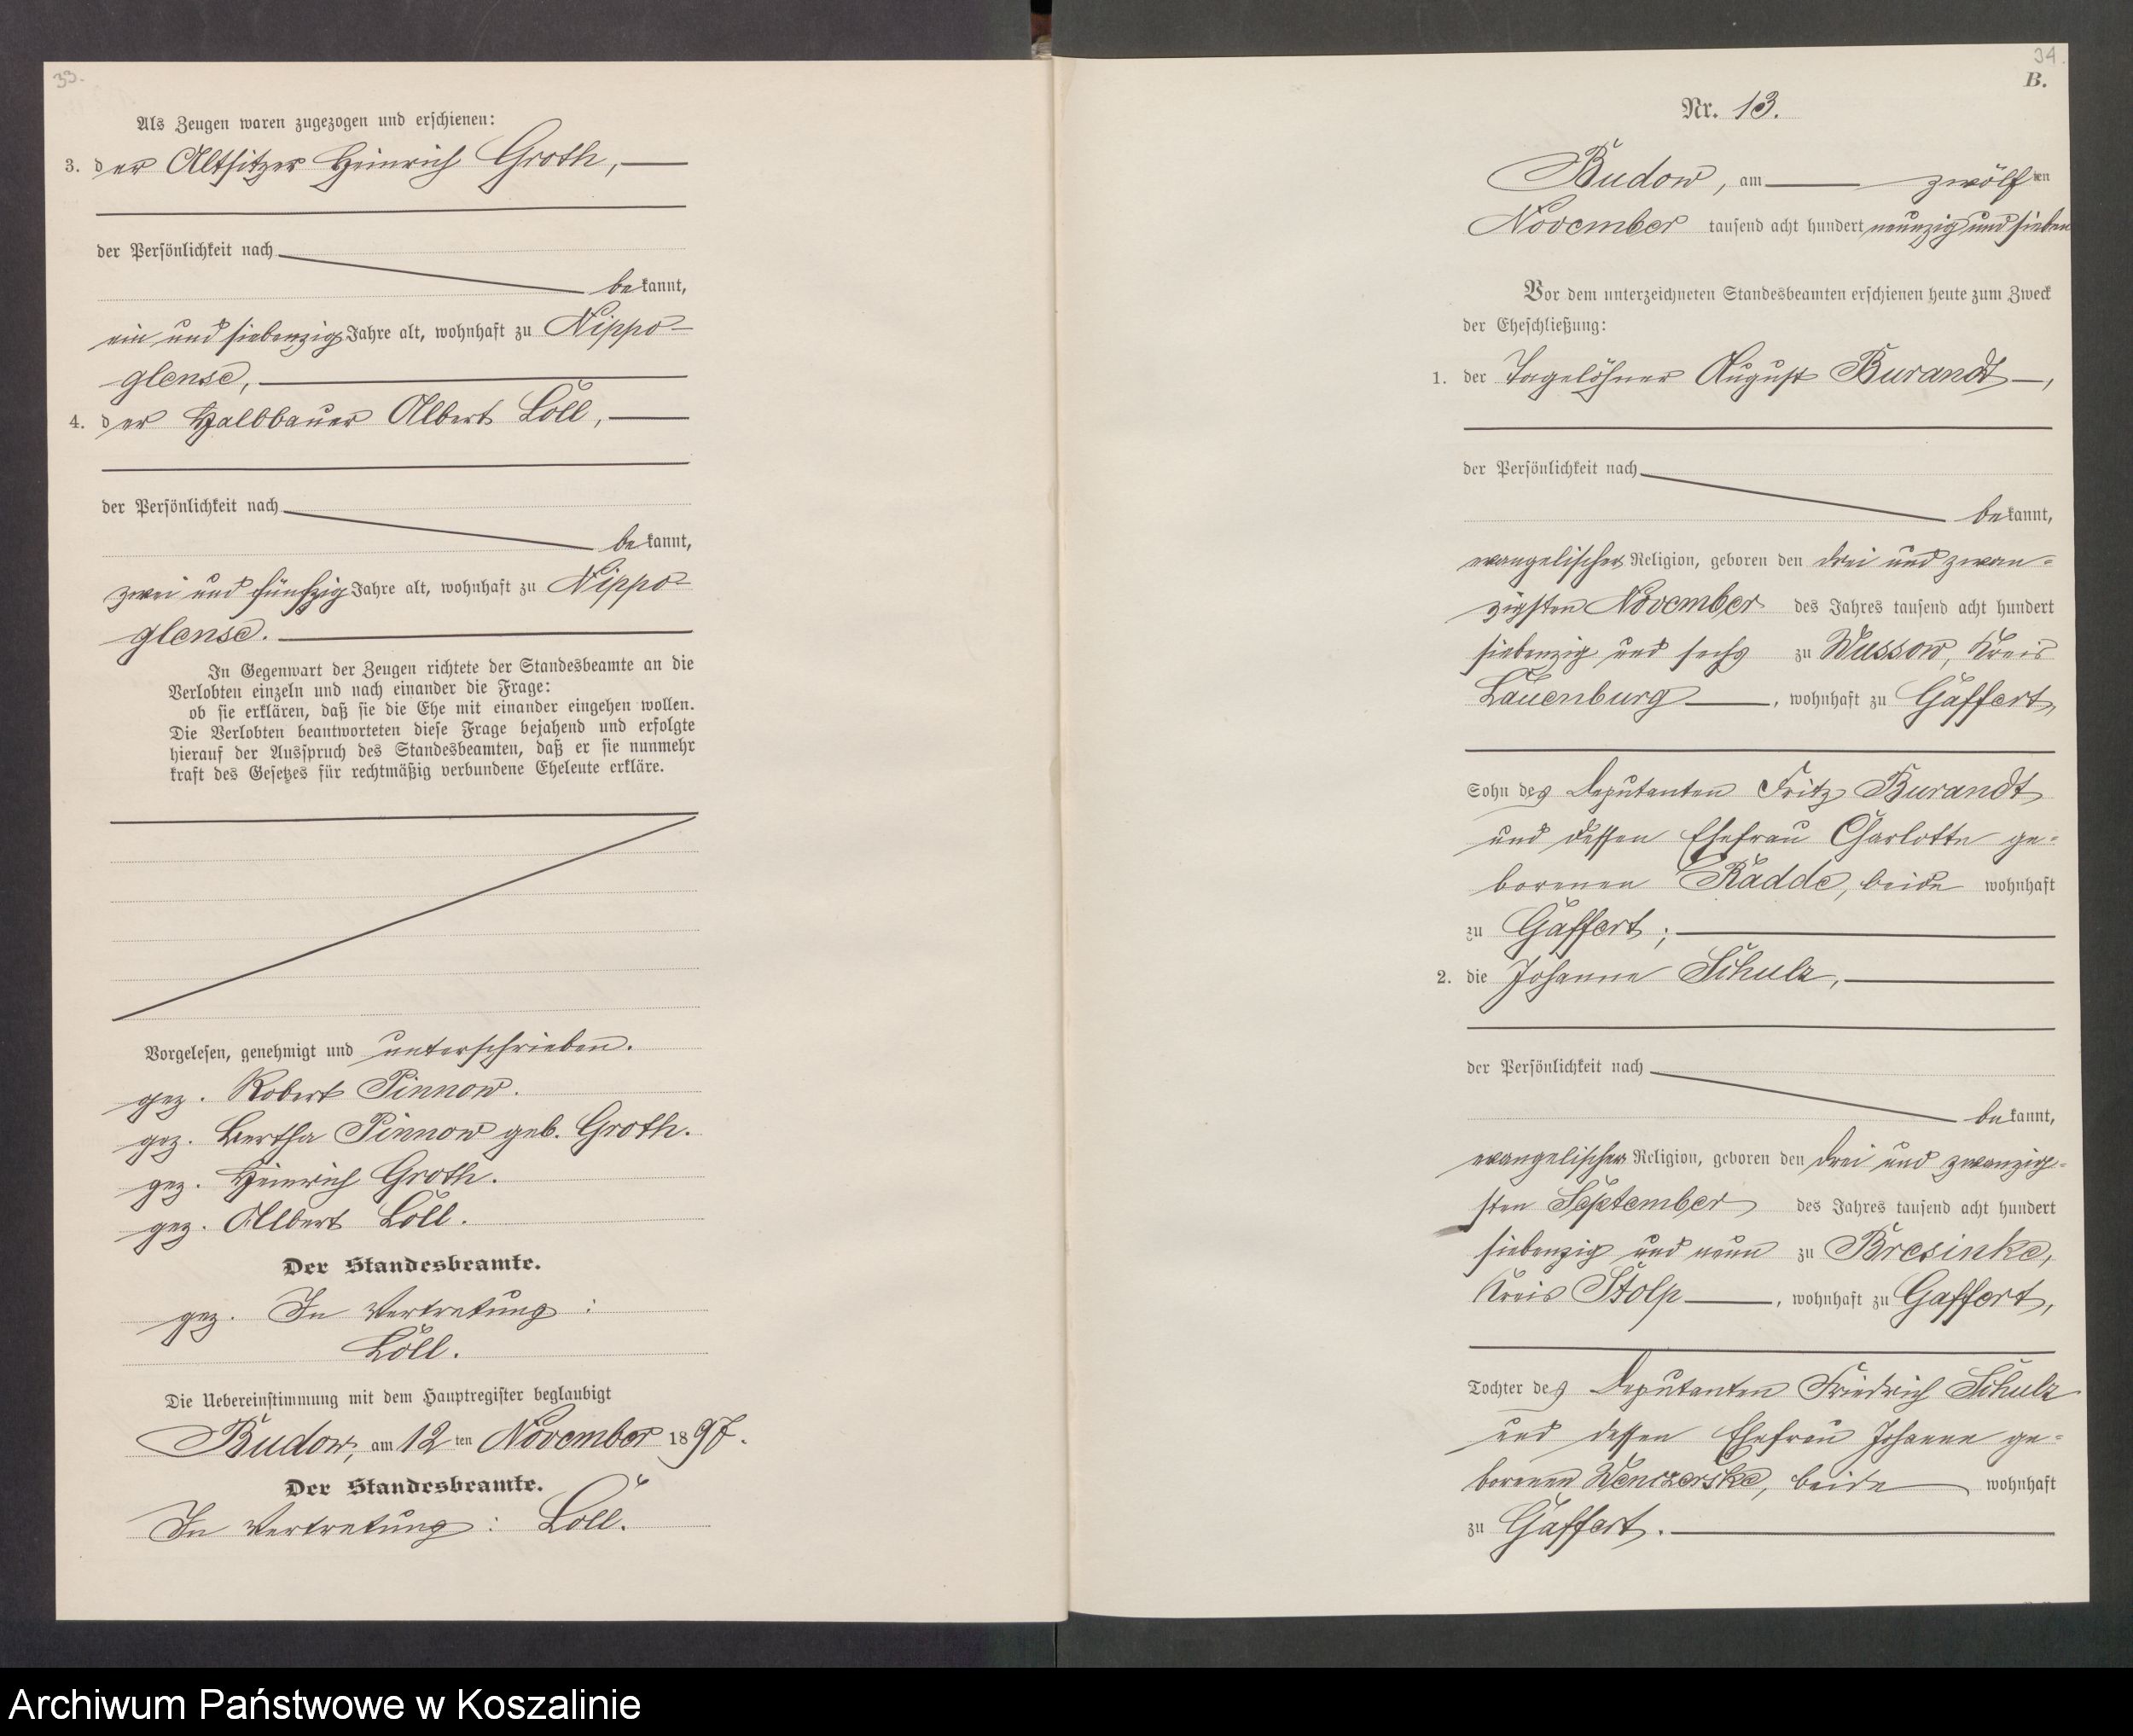 33.
Als Zeugen waren zugezogen und erschienen:
3. der Altsitzer Heinrich Groth,
der Persönlichkeit nach
bekannt,
ein und siebenzig Jahre alt, wohnhaft zu Nippo-
glense,
4. der Halbbauer Albert Löll,
der Persönlichkeit nach
bekannt,
zwei und fünfzig Jahre alt, wohnhaft zu Nippo-
glense.
In Gegenwart der Zeugen richtete der Standesbeamte an die
Verlobten einzeln und nach einander die Frage:
ob sie erklären, daß sie die Ehe mit einander eingehen wollen.
Die Verlobten beantworteten diese Frage bejahend und erfolgte
hierauf der Ausspruch des Standesbeamten, daß er sie nunmehr
kraft des Gesetzes für rechtmäßig verbundene Eheleute erkläre.
Vorgelesen, genehmigt und unterschrieben.
gez. Robert Pinnow.
gez. Bertha Pinnow geb. Groth.
gez. Heinrich Groth.
gez. Albert Löll.
Der Standesbeamte.
gez. In Vertretung:
Löll.
Die Uebereinstimmung mit dem Hauptregister beglaubigt
Budow, am 12 ten November 1897.
Der Standesbeamte.
In Vertretung: Löll.
34.
B.
Nr. 13.
Budow, am zwölften
November tausend acht hundert neunzig und sieben
Vor dem unterzeichneten Standesbeamten erschienen heute zum Zweck
der Eheschließung:
1. der Tagelöhner August Burandt,
der Persönlichkeit nach
bekannt,
evangelischer Religion, geboren den drei und zwan-
zigsten November des Jahres tausend acht hundert
siebenzig und sechs zu Wussow, Kreis
Lauenburg, wohnhaft zu Gaffert,
Sohn des Deputanten Fritz Burandt
und dessen Ehefrau Charlotte ge-
borenen Radde, beide wohnhaft
zu Gaffert;
2. die Johanne Schulz,
der Persönlichkeit nach
bekannt,
evangelischer Religion, geboren den drei und zwanzig-
sten September des Jahres tausend acht hundert
siebenzig und neun zu Bresinke,
Kreis Stolp, wohnhaft zu Gaffert,
Tochter des Deputanten Friedrich Schulz
und dessen Ehefrau Johanne ge-
borenen Wenczerske, beide wohnhaft
zu Gaffert.
Archiwum Państwowe w Koszalinie